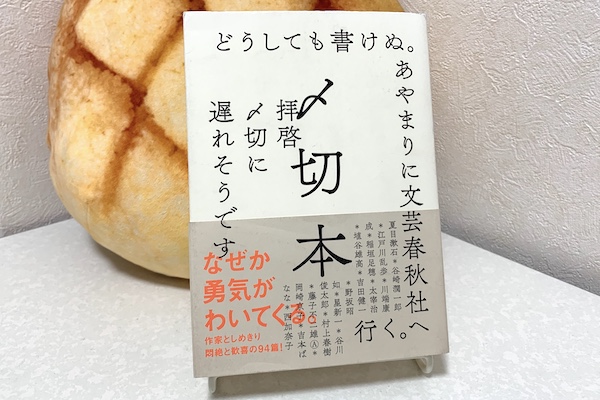 どうしても書けぬ。
あやまりに文芸春秋社へ
行く。
〆切本
拝啓
〆切に
遅れそうです
夏目漱石＊谷崎潤一郎
＊江戸川乱歩＊川端康
成＊稲垣足穂＊太宰治
＊埴谷雄高＊吉田健一
＊野坂昭
如＊星新一＊谷川
俊太郎＊村上春樹
＊藤子不二雄Ⓐ＊
岡崎京子＊吉本ば
なな＊西加奈子
なぜか
勇気が
わいてくる。
作家としめきり
悶絶と歓喜の94篇!